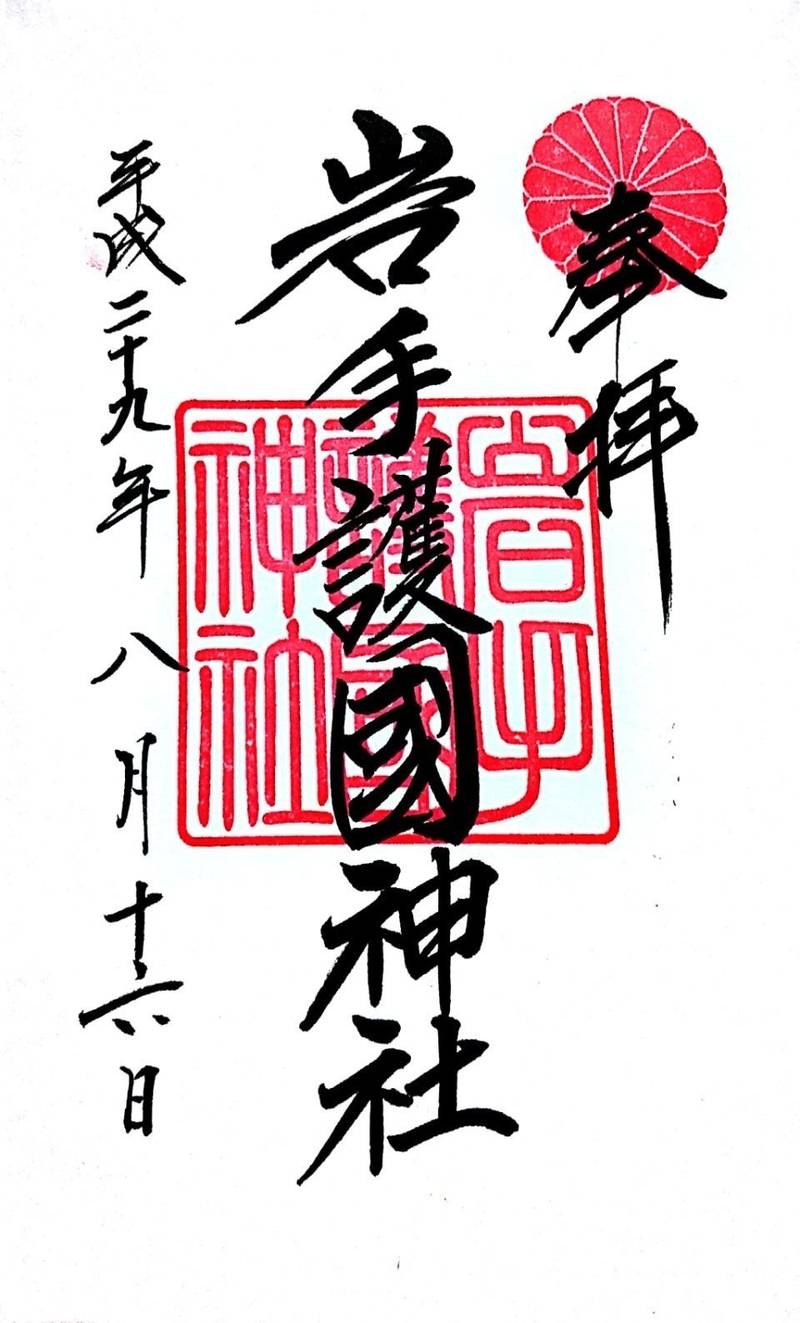 奉拝
岩手護國神社
岩手護國神社
平成二十九年八月十六日